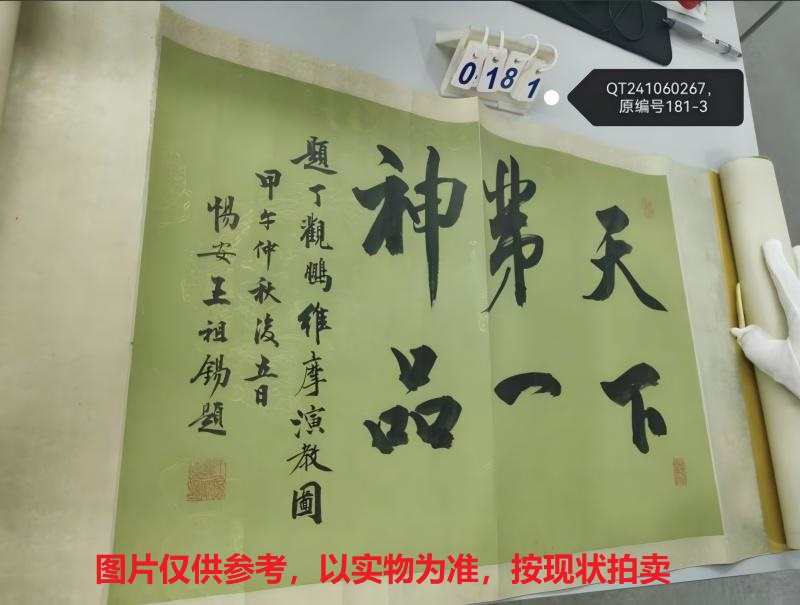 0 181
QT241060267，
原编号181-3
天下
第一
神品
題丁觀鵬維摩演教圖
甲午仲秋後五日
惕安王祖錫題
图片仅供参考，以实物为准，按现状拍卖